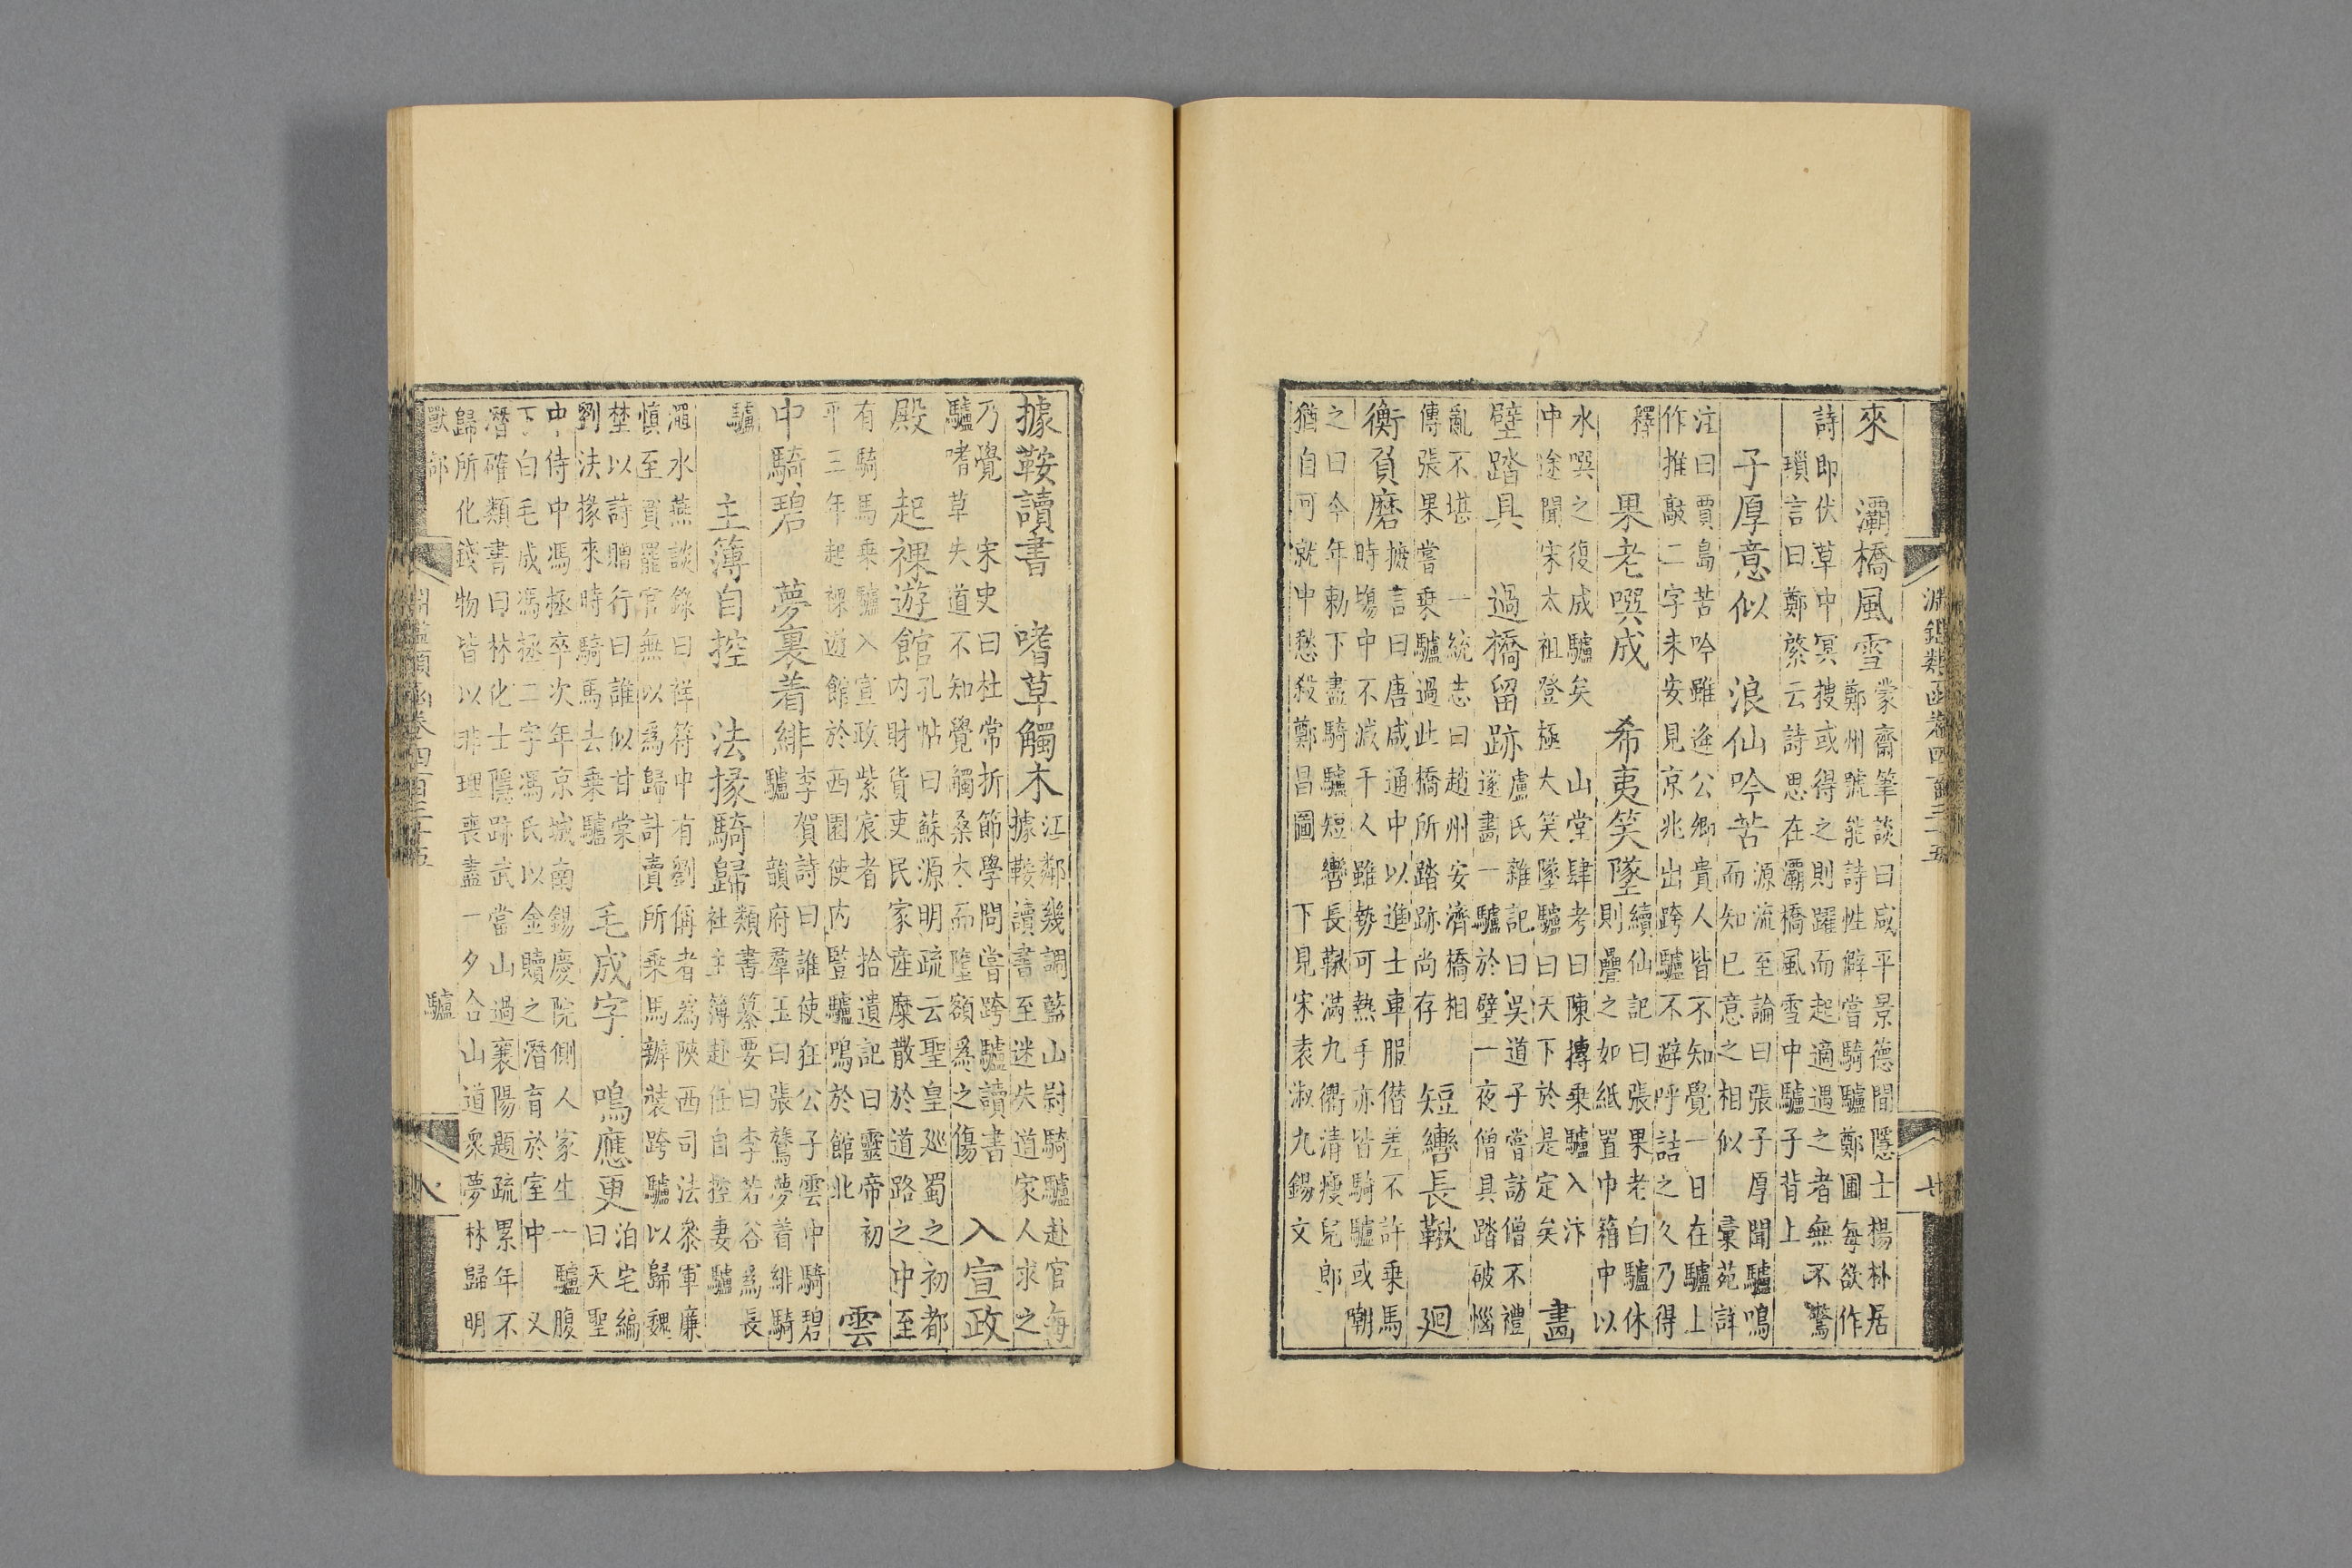 淵鑑類函卷四百三十五
來 灞橋風雪
蒙齋筆談曰咸平景德間隱士楊朴居
鄭州號能詩性僻嘗騎驢鄭圃每欲作
詩即伏草中冥搜或得之則躍而起適遇之者無不驚
瑣言曰鄭綮云詩思在灞橋風雪中驢子背上
子厚意似 浪仙吟苦
源流至論曰張子厚聞驢鳴
而知已意之相似 彙苑詳
注曰賈島苦吟雖逄公卿貴人皆不知覺一日在驢上
作推敲二字未安見京兆出跨驢不避呼詰之久乃得
釋
果老噀成 希夷笑墜
續仙記曰張果老白驢休
則疊之如紙置巾箱中以
水噀之復成驢矣 山堂肆考曰陳摶乗驢入汴
中途聞宋太祖登極大笑墜驢曰天下於是定矣
畵
壁踏具 過橋留跡
盧氏雜記曰吳道子嘗訪僧不禮
遂畵一驢於壁一夜僧具踏破惱
亂不堪 一統志曰趙州安濟橋相
傳張果嘗乗驢過此橋所踏跡尚存
短轡長鞦 廻
衡負磨
摭言曰唐咸通中以進士車服僣差不許乗馬
時塲中不減千人雖勢可熱手亦皆騎驢或嘲
之曰今年勅下盡騎驢短轡長鞦滿九衢清瘦兒郎
猶自可就中愁殺鄭昌圖 下見宋袁淑九錫文
據鞍讀書 嗜草觸木
江鄰幾調藍山尉騎驢赴官每
據鞍讀書至迷失道家人求之
乃覺 宋史曰杜常折節學問嘗跨驢讀書
驢嗜草失道不知覺觸桑木而墮額爲之傷
入宣政
殿 起裸遊館
孔帖曰蘇源明疏云聖皇廵蜀之初都
内財貨吏民家產糜散於道路之中至
有騎馬乘驢入宣政紫宸者 拾遺記曰靈帝初
平三年起裸遊館於西園使内豎驢鳴於館北
雲
中騎碧 夢裏着緋
李賀詩曰誰使在公子雲中騎碧
驢 韻府羣玉曰張鷟夢着緋騎
驢
主簿自控 法掾騎歸
類書纂要曰李若谷爲長
社主簿赴任自控妻驢
澠水燕談錄曰祥符中有劉偁者為陝西司法叅軍廉
愼至貧罷官無以為歸計賣所乘馬辦裝跨驢以歸魏
埜以詩贈行曰誰似甘棠
劉法掾來時騎馬去乘驢
毛成字 鳴應更
泊宅編
曰天聖
中侍中馮極卒次年京城南錫慶院側人家生一驢腹
下白毛成馮拯二字馮氏以金贖之潛育於室中 又
潛確類書曰林化士隱跡武當山過襄陽題疏累年不
歸所化錢物皆以非理喪盡一夕合山道衆夢林歸明
獸部 驢
淵鑑類函卷四百三十五
八